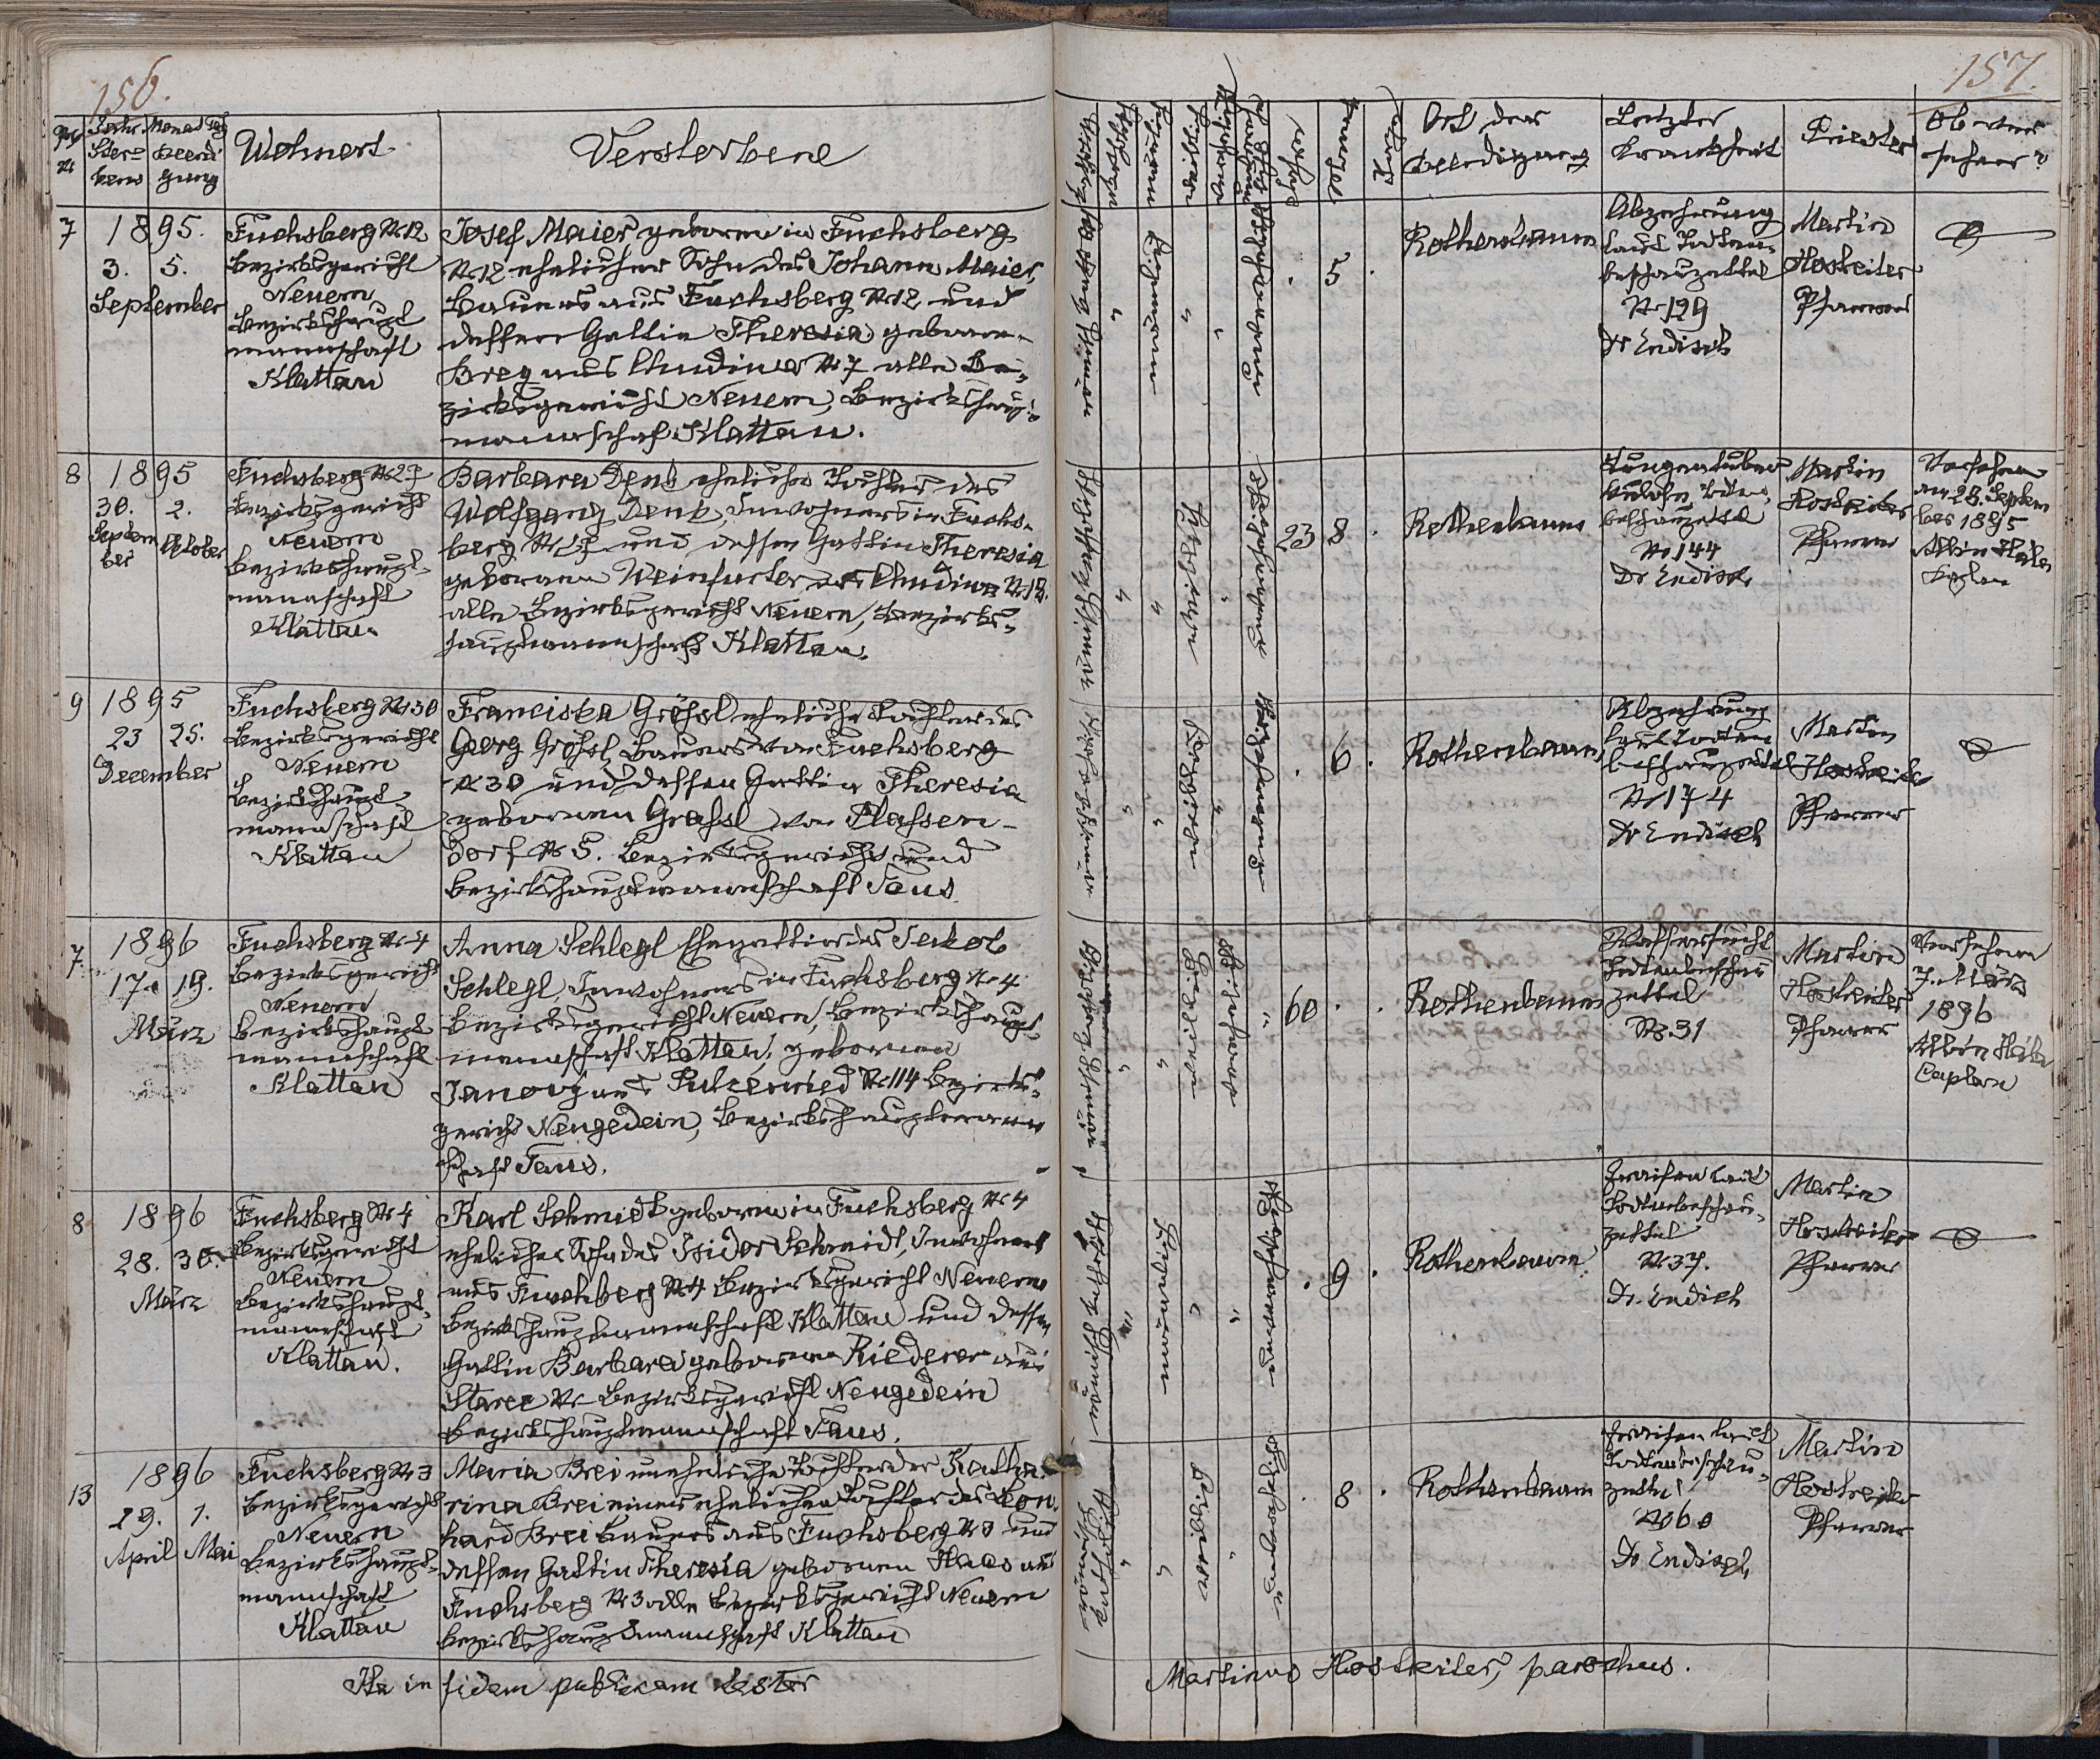 156.
Jahr Monat Tag
Ster=
bens
Beerdi
gung
Wohnort
Verstorbene
7
1895.
3. 5.
September
Fuchsberg № 12
Bezirksgericht
Neuern
Bezirkshaupt
mannschaft
Klattau
Josef Maier, geboren in Fuchsberg
№ 12 ehelicher Sohn des Johann Maier,
Bauers aus Fuchsberg № 12 und
dessen Gattin Theresia geborene
Breg aus Chudiwa № 7 alle Be-
zirksgericht Neuern, Bezirkshaupt-
mannschaft Klattau.
8
1895
30. 2.
Septem
ber
Oktober
Fuchsberg № 27
Bezirksgericht
Neuern
Bezirkshaupt-
mannschaft
Klattau
Barbara Denk eheliche Tochter des
Wolfgang Denk, Inwohners in Fuchs-
berg № 27 und dessen Gattin Theresia
geborenen Weinfurter aus Chudiwa № 18.
alle Bezirksgericht Neuern, Bezirks-
hauptmannschaft Klattau.
9
1895
23 25.
December
Fuchsberg № 30
Bezirksgericht
Neuern
Bezirkshaupt-
mannschaft
Klattau
Franciska Größl eheliche Tochter des
Georg Größl, Bauers von Fuchsberg
№ 30 und dessen Gattin Theresia
geborenen Graßl von Plassen-
dorf № 5. Bezirksgericht und
Bezirkshauptmannschaft Taus
7
1896
17. 19.
März
Fuchsberg № 4
Bezirksgericht
Neuern
Bezirkshaupt
mannschaft
Klattau
Anna Schlegl Ehegattin des Jakob
Schlegl, Inwohners in Fuchsberg № 4
Bezirksgericht Neuern, Bezirkshaupt-
mannschaft Klattau, geborenen
Janovj aus Putzeried № 114 Bezirks-
gericht Neugedein, Bezirkshauptmann
schaft Taus.
8
1896
28. 30.
März
Fuchsberg № 4
Bezirksgericht
Neuern
Bezirkshaupt-
mannschaft
Klattau.
Karl Schmidt geboren in Fuchsberg № 4
ehelicher Sohn des Isidor Schmidt, Inwohners
aus Fuchsberg № 4 Bezirksgericht Neuern
Bezirkshauptmannschaft Klattau und dessen
Gattin Barbara geborenen Riederer aus
Starec № Bezirksgericht Neugedein
Bezirkshauptmannschaft Taus.
13
1896
29. 1.
April Mai
Fuchsberg № 3
Bezirksgericht
Neuern
Bezirkshaupt-
mannschaft
Klattau
Maria Brei uneheliche Tochter der Katha-
rina Brei einer ehelichen Tochter des Leon
hard Brei Bauers aus Fuchsberg № 3 und
dessen Gattin Theresia geborenen Haas aus
Fuchsberg № 3 alle Bezirksgericht Neuern
Bezirkshauptmannschaft Klattau
Ita in fidem publicam testor
157.
Ort der
Beerdigung
Letzter
Krankheit
Priester
Ob ver
sehen?
5
Rothenbaum
Abzehrung
laut Todten-
beschauzettel
№ 129
Dr Endisch
Martin
Hostreiter
Pfarrer
23 8
Rothenbaum
Lungentuber
kulose, Todten-
beschauzettel
№ 144
Dr Endisch
Martin
Hostreiter
Pfarrer
Versehen
am 28. Septem
ber 1895
Albin
Caplan
6
Rothenbaum
Abzehrung
laut Todten
beschauzettel
№ 174
Dr Endisch
Martin
Hostreiter
Pfarrer
60
Rothenbaum
Wassersucht
Todtenbeschau
zettel
№ 31
Martin
Hostreiter
Pfarrer
Versehen
7. März
1896
Albin
Caplan
9
Rothenbaum
Fraisen laut
Todtenbeschau-
zettel
№ 37.
Dr. Endisch
Martin
Hostreiter
Pfarrer
8
Rothenbaum
Fraisen laut
Todtenbeschau-
zettel
№ 60
Dr Endisch
Martin
Hostreiter
Pfarrer
Martinus Hostreiter, parochus.